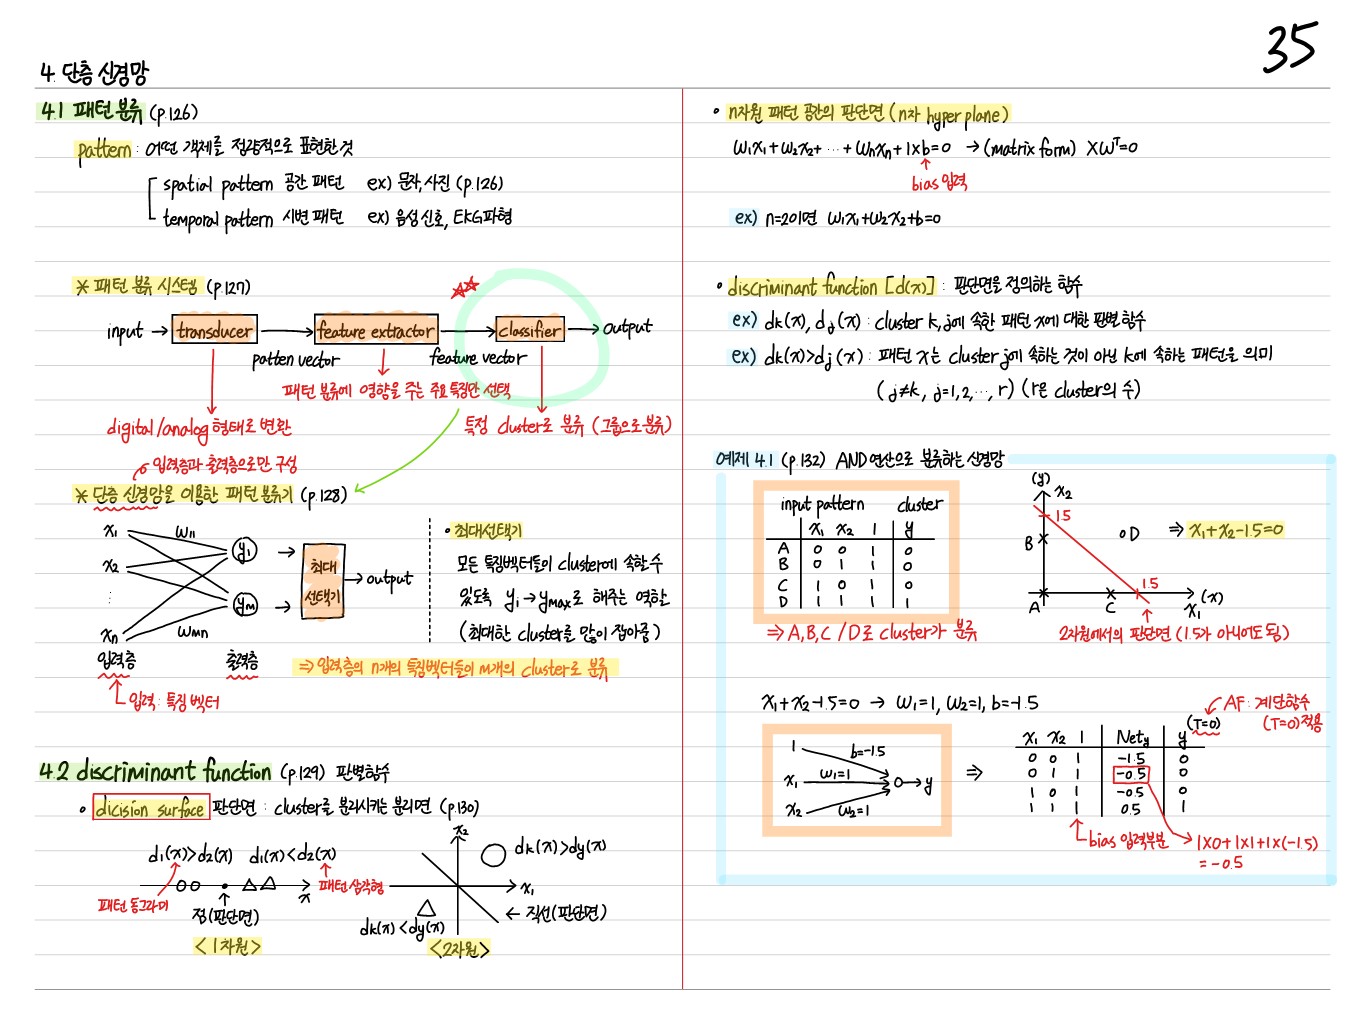 35
4. 단층 신경망
4.1 패턴 분류 (p.126)
pattern : 어떤 객체를 정량적으로 표현한 것
spatial pattern 공간 패턴 ex) 문자, 사진 (p.126)
temporal pattern 시변 패턴 ex) 음성 신호, EKG 파형
* 패턴 분류 시스템 (p.127)
☆☆
input → transducer → feature extractor → classifier → output
patten vector feature vector
패턴 분류에 영향을 주는 주요 특징만 선택
digital/analog 형태로 변환
특정 cluster로 분류 (그룹으로 분류)
입력층과 출력층으로만 구성
* 단층 신경망을 이용한 패턴 분류기 (p.128)
x1 w11 y1
x2
⋮
xn wmn ym
최대 선택기 → output
입력층 출력층
입력 : 특징 벡터
• 최대선택기
모든 특징벡터들이 cluster에 속할 수
있도록 yi → ymax로 해주는 역할
(최대한 cluster를 많이 잡아줌)
⇒ 입력층의 n개의 특징벡터들이 m개의 cluster로 분류
4.2 discriminant function (p.129) 판별함수
• dicision surface 판단면 : cluster로 분리시키는 분리면 (p.130)
d1(x)>d2(x) d1(x)<d2(x)
패턴 동그라미 패턴 삼각형
x
점(판단면)
<1차원>
x2
dk(x)>dy(x)
x1
← 직선(판단면)
dk(x)<dy(x)
<2차원>
• n차원 패턴 공간의 판단면 (n차 hyper plane)
w1x1+w2x2+ ⋯ +wnxn+1×b=0 → (matrix form) XWᵀ=0
bias 입력
ex) n=2이면 w1x1+w2x2+b=0
• discriminant function [d(x)] : 판단면을 정의하는 함수
ex) dk(x), dj(x) : cluster k, j에 속한 패턴 x에 대한 판별함수
ex) dk(x)>dj(x) : 패턴 x는 cluster j에 속하는 것이 아닌 k에 속하는 패턴을 의미
(j≠k, j=1,2,⋯,r) (r은 cluster의 수)
예제 4.1 (p.132) AND연산으로 분류하는 신경망
input pattern cluster
x1 x2 1 y
A 0 0 1 0
B 0 1 1 0
C 1 0 1 0
D 1 1 1 1
⇒ A,B,C / D로 cluster가 분류
(y) x2
1.5
B
D
⇒ x1+x2-1.5=0
1.5
A C x1 (x)
2차원에서의 판단면 (1.5가 아니어도 됨)
x1+x2-1.5=0 → w1=1, w2=1, b=-1.5
1 b=-1.5
x1 w1=1 → y
x2 w2=1
⇒
AF : 계단함수
(T=0) 적용
(T=0)
x1 x2 1 Nety y
0 0 1 -1.5 0
0 1 1 -0.5 0
1 0 1 -0.5 0
1 1 1 0.5 1
bias 입력부분
1×0+1×1+1×(-1.5)
= -0.5